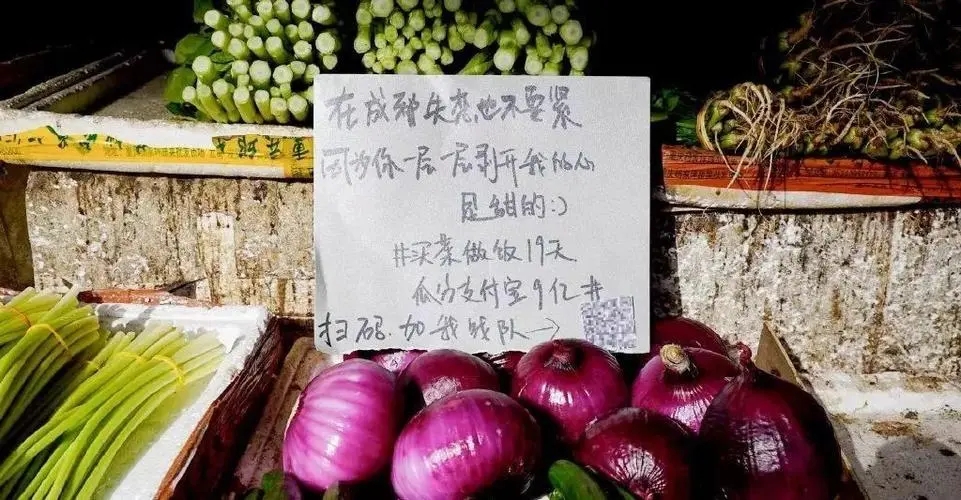 在成都失恋也不要紧
因为你一层一层剥开我的心
是甜的:)
#买菜做饭19天
瓜分支付宝9亿#
扫码加我战队→